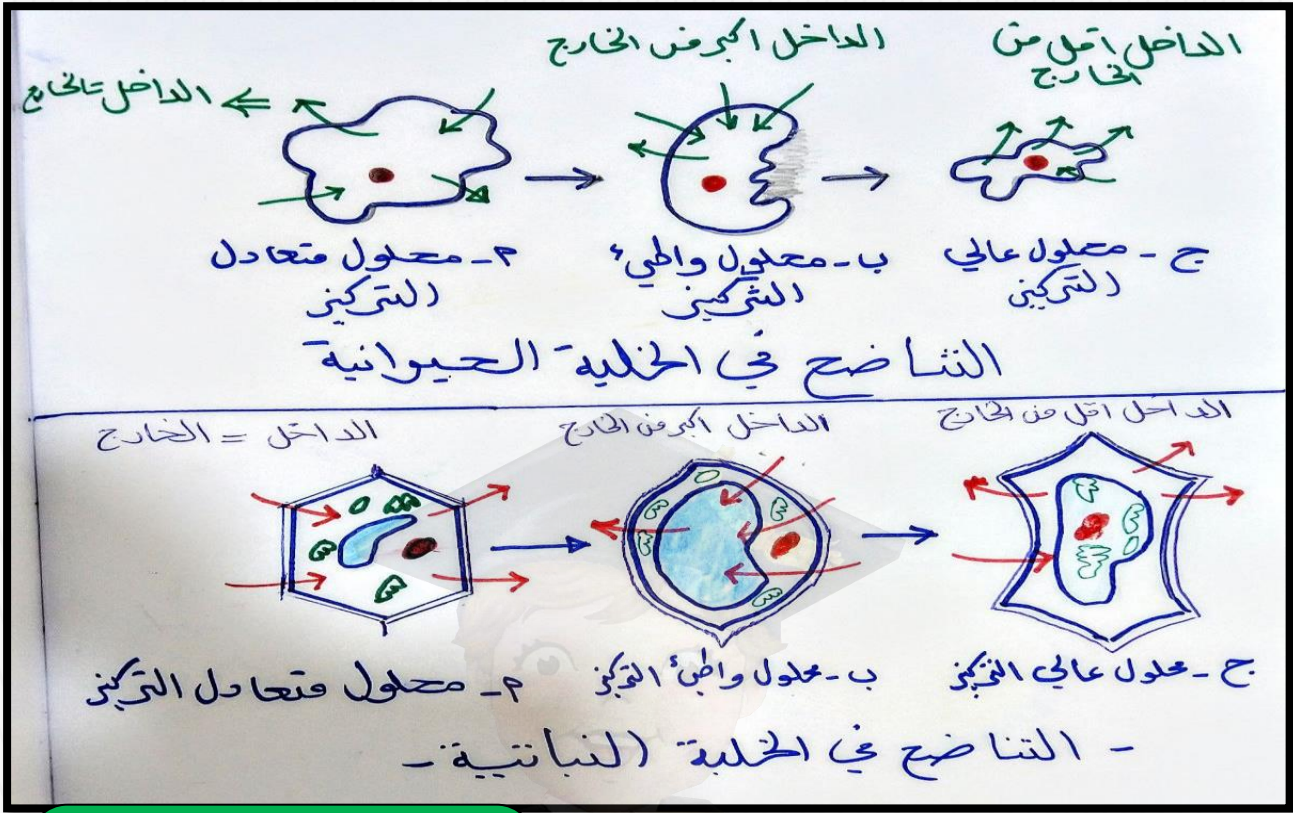 الداخل أقل من
الخارج
الداخل اكبر من الخارج
الداخل = الخارج
ج - محلول عالي
التركيز
ب - محلول واطيء
التركيز
م - محلول متعادل
التركيز
التناضح في الخلية الحيوانية
الداخل اقل من الخارج
الداخل أكبر من الخارج
الداخل = الخارج
ج - محلول عالي التركيز
ب - محلول واطئ التركيز
م - محلول متعادل التركيز
- التناضح في الخلية النباتية -